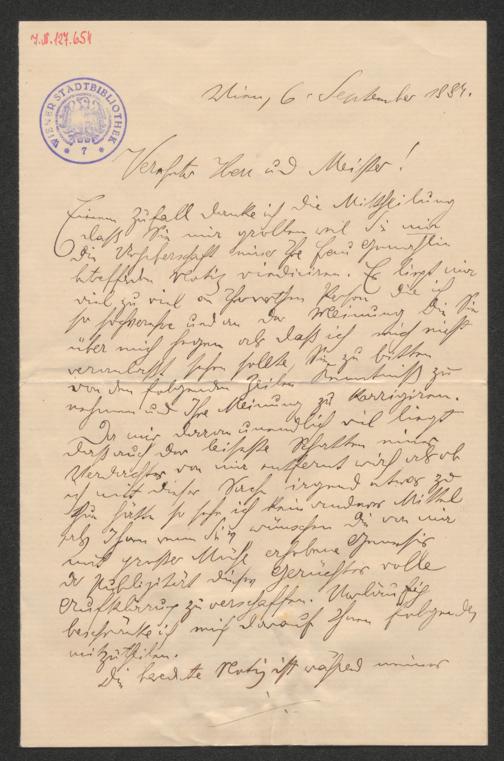 J.N. 127.654
WIENER STADTBIBLIOTHEK
* 7 *
Wien, 6. September 1884.
Verehrter Herr und Meister!
Einem Zufall danke ich die Mittheilung
daß Sie mir grollen weil Sie mir
die Urheberschaft einer Ihre Frau Gemahlin
betreffenden Notiz vindiciren. Es liegt mir
viel zu viel an Ihrer werthen Person die ich
so hochverehre und an der Meinung die Sie
über mich hegen als daß ich mich nicht
veranlaßt sehen sollte, Sie zu bitten
von den folgenden Zeilen Kenntniß zu
nehmen und Ihre Meinung zu korrigiren.
Da mir daran unendlich viel liegt
daß auch der leiseste Schatten eines
Verdachtes von mir entfernt wird als ob
ich mit dieser Sache irgend etwas zu
thun hätte so sehe ich kein anderes Mittel
als Ihnen wenn Sie wünschen die von mir
mit großer Mühe erhobene Genesis
der Publizität dieses Gerüchtes volle
Aufklärung zu verschaffen. Vorläufig
beschränke ich mich darauf Ihnen folgendes
mitzutheilen.
Die beredete Notiz ist während meiner